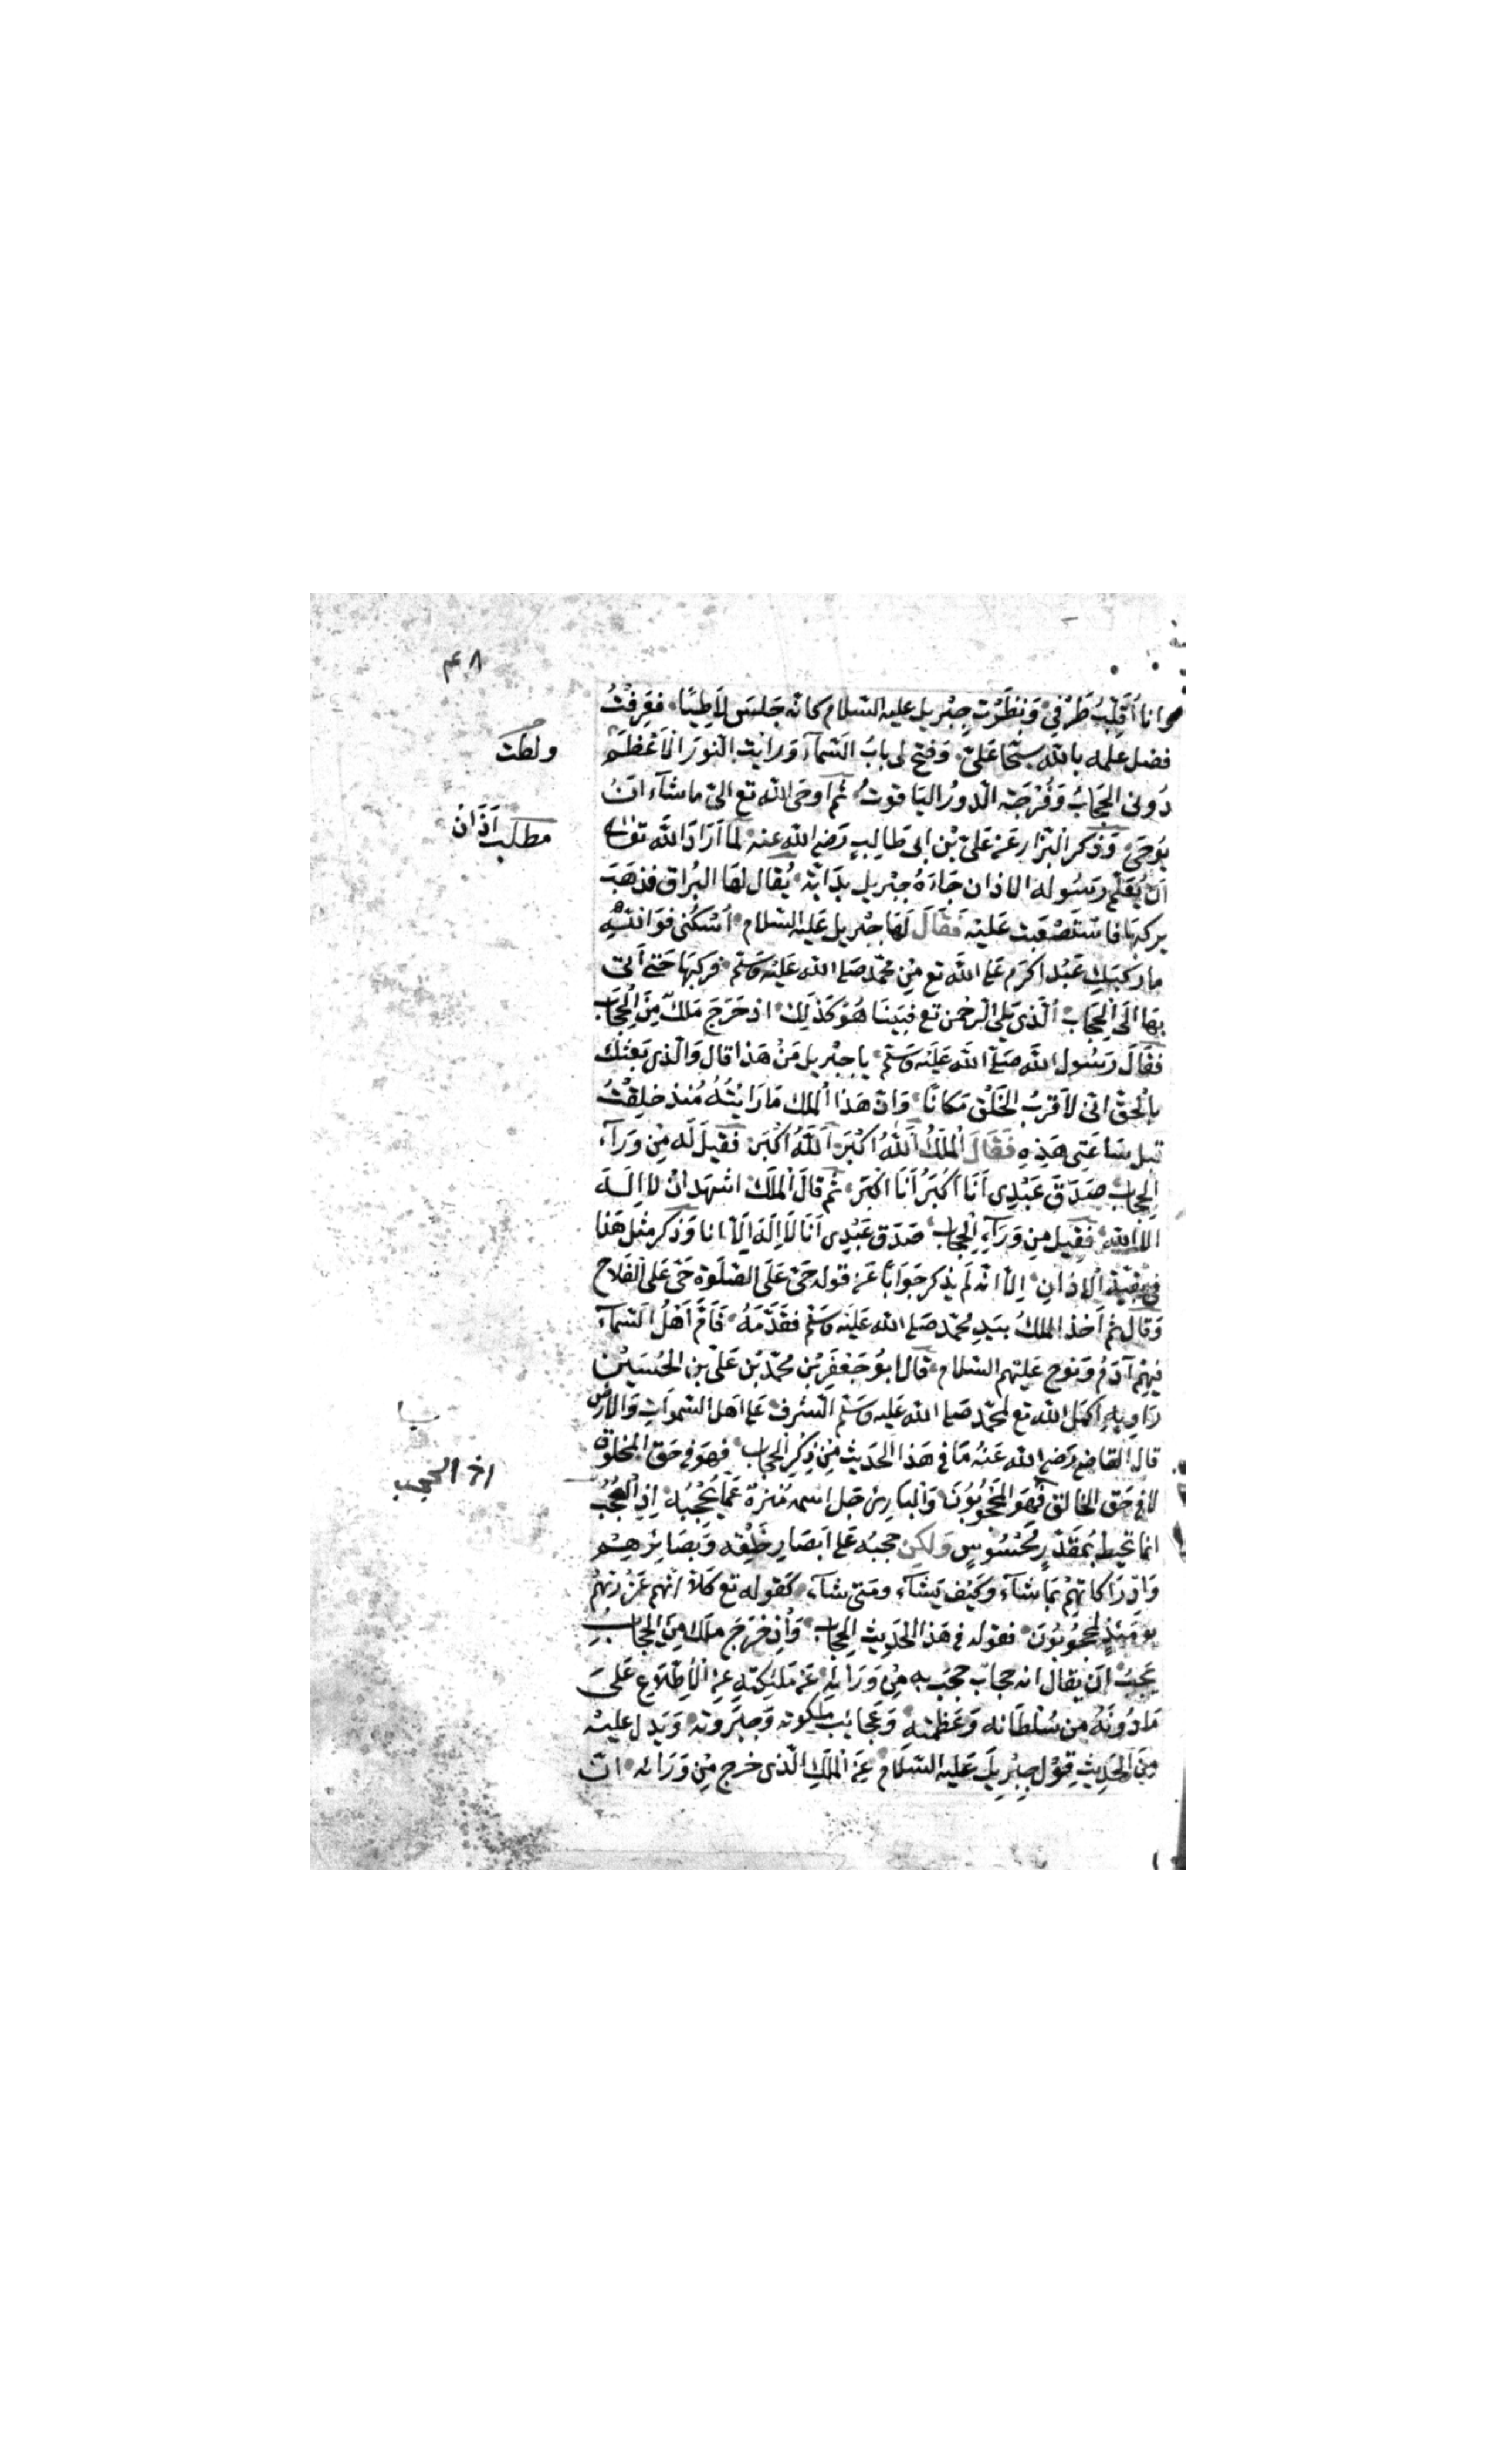 وانا اُقَلِّبُ طَرْفِي وَنَظَرْتُ جِبْرِيلَ عليه السّلام كانّه حِلسٌ لَاطِئًا فعَرِفْتُ
فضل علمه بالله سبحا عَلَيَّ وَفتح لى بابُ السَّمآء وَرَايْتُ النّورَ الْاَعْظَمَ
دُونى الحِجَابُ وَفُرَجَتُه الدّورُ اليَاقوتُ ثم اَوحَى الله تع الىّ ما شآء انْ
يوحَى وَذكر البَزّار عَنْ عَلىّ بْن ابى طَالِبٍ رَضى الله عنه لمّا اَرَادَ الله تعالى
اَنْ يُعَلِّمَ رسُوله الاذان جَاءَهُ جِبْريل بدَابّة يُقال لهَا البُراق فذهَبَ
يركبهَا فاسْتَصْعَبت عَليْه فَقَالَ لَهَا جبْريل عَليه السّلام اُسْكُنى فوَاللهِ
ما ركبَكِ عَبْد اكرَم عَلى اللّه تع مِنْ محمّد صَلى الله عَليْه وَسَلّم فركبَهَا حَتّى اَتى
بهَا الَى الْحِجَاب الَّذى يَلى الرّحْمن تع فبَيْنَا هُوَ كَذلِكَ اذ خَرَجَ مَلكٌ مِنَ الْحِجَاب
فقَالَ رَسُول اللّه صَلّى اللّه عَلَيْه وَسَلّم يا جبْريل مَنْ هَذا قال وَالّذى بَعَثكَ
بالْحقّ انّى لَاَقْرَبُ الخَلْق مَكانًا وَانّ هَذا الْمَلك مَا رَايْتُهُ مُنْذ خلِقْتُ
قبل سَاعَتِى هَذِهِ فَقَالَ الْمَلَكُ اَللّهُ اَكْبَر اَللّهُ اَكْبَر فقيلَ لَه مِنْ وَرَآء
الْحِجَاب صَدَقَ عَبْدِى اَنَا اَكْبَرُ اَنَا اكْبَر ثم قالَ الْمَلَكُ اشهَد انْ لا اِلَهَ
الا الله فقِيل مِن وَرَآءِ الْحِجَاب صَدَقَ عَبْدِى اَنَا لَا اِلَهَ اِلَّا انا وَذكر مثل هَذا
فى بَقيّة الْاذانِ اِلّا انّه لَم يذكر جَوَابًا عَنْ قوله حَىّ عَلَى الصّلَوة حَىّ عَلَى الْفَلاح
وَقال ثم اَخذ المَلكُ بيَدِ محمّد صَلى الله عَليْه وَسَلّم فقَدّمَهُ فَاَمَّ اَهْلَ السّمآء
فِيهِم آدَمُ وَنوح عَليْهم السّلام قال ابُو جَعْفَر بْن محمّد بْن عَلىّ بن الحُسَيْن
رَاوِيهِ اكمَل الله تع لمحمّد صَلى الله عَليْه وَسَلّم الشّرف عَلى اَهل السّموَاتِ وَالارْض
قال القاضى رَضى الله عَنْهُ مَا فى هَذا الحَدِيث مِنْ ذِكْرِ الحِجَاب فهوَ فى حَق المخلوق
لا فى حَق الخالق فَهُمُ المَحْجُوبُونَ وَالْبَارِئ جَلّ اسمه مُنَزّه عَمّا يَحْجُبُه اِذ الحُجُبُ
انما تحيط بمُقَدَّرٍ مَحْسُوسٍ وَلكِن حجبُه عَلى ابْصَارِ خَلْقِه وَبصَائِرِهِمْ
وَادْرَاكَاتِهِمْ بمَا شآء وَكَيْف يَشَآء وَمَتى شآء كَقوله تع كَلّا انّهم عَنْ رَبّهِمْ
يَوْمَئِذٍ لَمَحْجُوبُونَ فقوله فى هَذا الحَدِيث الحِجَاب وَاِذ خَرَجَ مَلك مِنَ الحِجَاب
يَجبُ اَنْ يقال انه حِجَاب حَجَبَ به مَنْ وَرَائهِ مِنْ مَلئِكَته عَنِ الْاِطّلَاعِ عَلَى
مَا دُونَهُ مِن سُلطَانه وَعَظمَتِه وَعَجائب مَلكوته وَجبَرُوته وَيَدل عَليْه
مِنَ الحَدِيث قوْل جِبْرِيلَ عَليه السّلَام عَنِ الْمَلَكِ الّذى خرج مِنْ وَرَائه انّ
ولطت
مطلب اَذَان